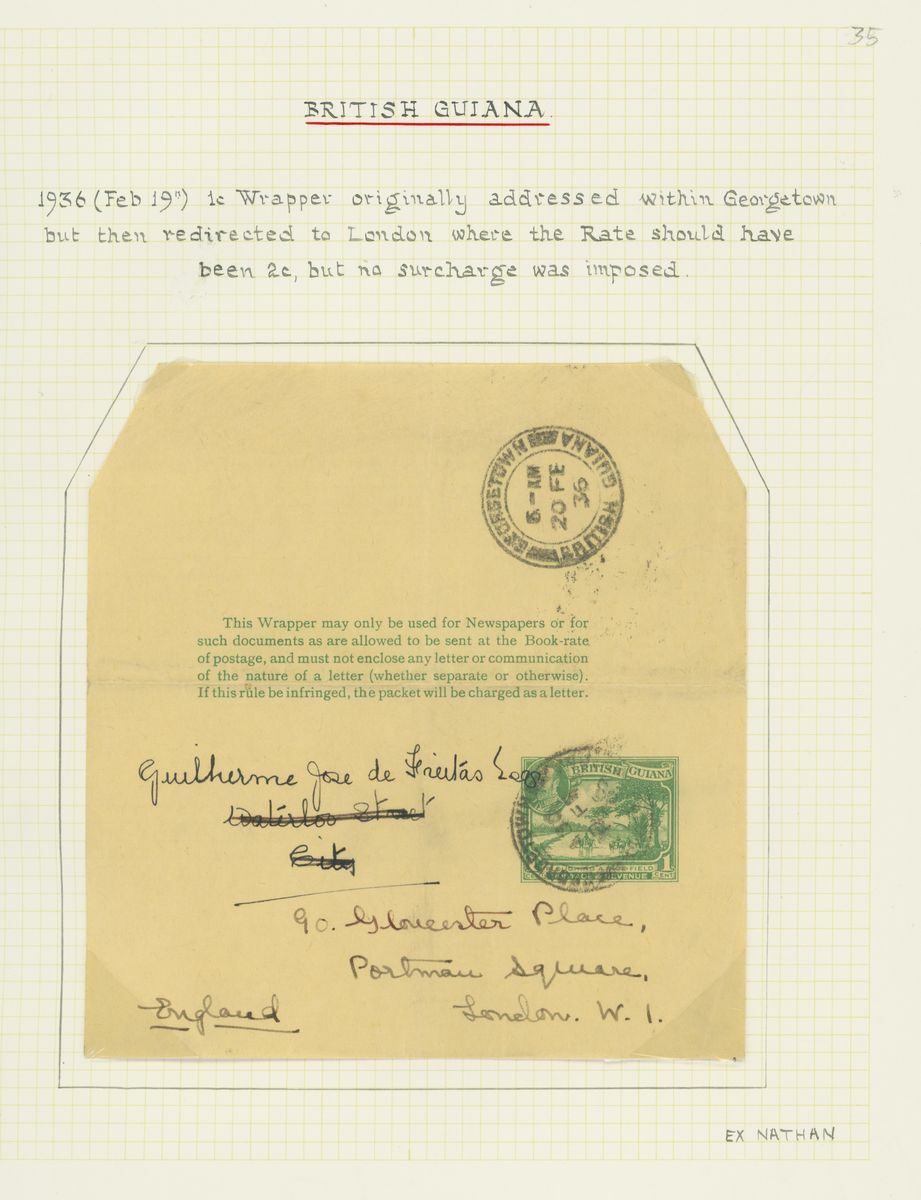 35
BRITISH GUIANA.
1936 (Feb 19") 1c Wrapper originally addressed within Georgetown
but then redirected to London where the Rate should have
been 2c, but no surcharge was imposed.
GEORGETOWN BRITISH GUIANA
6-AM
20 FE
36
This Wrapper may only be used for Newspapers or for
such documents as are allowed to be sent at the Book-rate
of postage, and must not enclose any letter or communication
of the nature of a letter (whether separate or otherwise).
If this rule be infringed, the packet will be charged as a letter.
Guilherme Jose de Freitas Esq
Waterloo Street
City
BRITISH GUIANA
PLOUGHING A RICE FIELD
POSTAGE & REVENUE
1 CENT
90. Gloucester Place,
Portman Square,
London. W. 1.
England
EX NATHAN